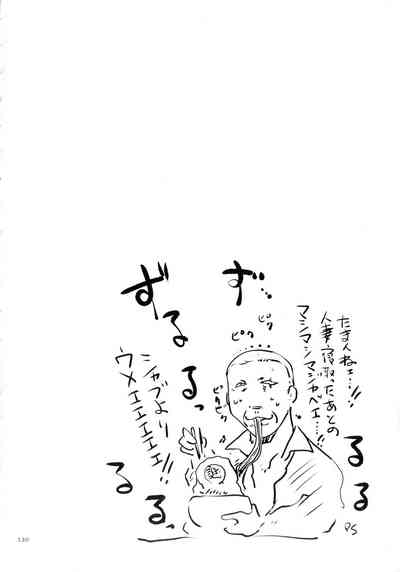 たまんねェ…!!
人妻寝取ったあとの
マシマシマシャベェ…!!
ず…
ピク
ピク
ピクピク
ずるるっ
シャブより
ウメェエエエエ!!
るる
るる
PS
130